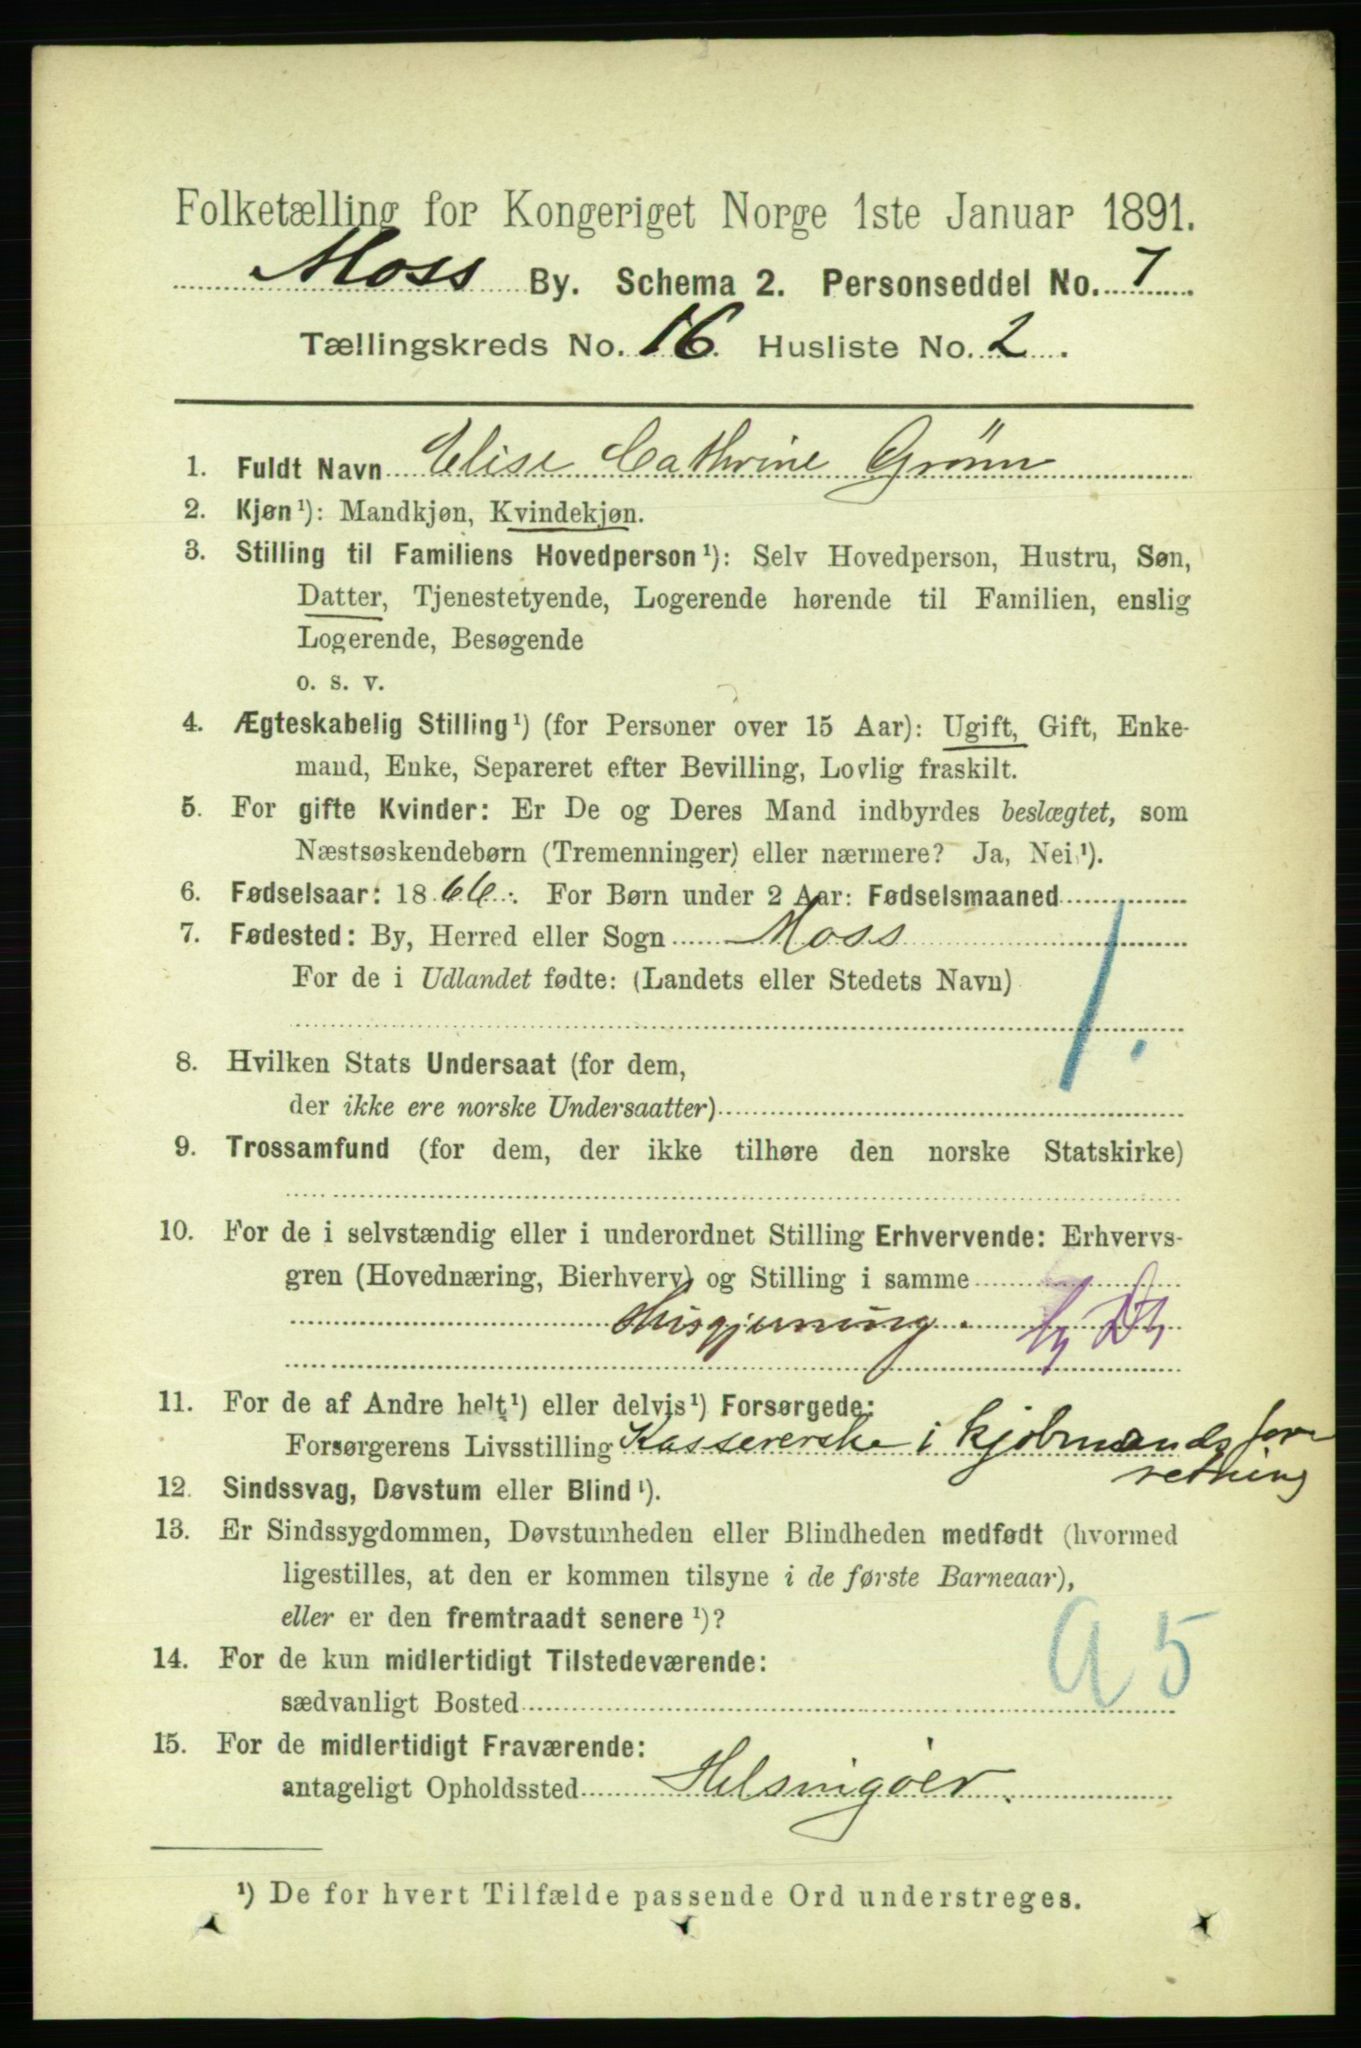 Folketælling for Kongeriget Norge 1ste Januar 1891.
Moss By. Schema 2. Personseddel No. 7
Tællingskreds No. 16. Husliste No. 2.
1. Fuldt Navn Elise Cathrine Grönn
2. Kjøn¹): Mandkjøn, Kvindekjøn.
3. Stilling til Familiens Hovedperson¹): Selv Hovedperson, Hustru, Søn,
Datter, Tjenestetyende, Logerende hørende til Familien, enslig
Logerende, Besøgende
o. s. v.
4. Ægteskabelig Stilling¹) (for Personer over 15 Aar): Ugift, Gift, Enke-
mand, Enke, Separeret efter Bevilling, Lovlig fraskilt.
5. For gifte Kvinder: Er De og Deres Mand indbyrdes beslægtet, som
Næstsøskendebørn (Tremenninger) eller nærmere? Ja, Nei¹).
6. Fødselsaar: 1866. For Børn under 2 Aar: Fødselsmaaned
7. Fødested: By, Herred eller Sogn Moss
For de i Udlandet fødte: (Landets eller Stedets Navn)
1.
8. Hvilken Stats Undersaat (for dem,
der ikke ere norske Undersaatter)
9. Trossamfund (for dem, der ikke tilhøre den norske Statskirke)
10. For de i selvstændig eller i underordnet Stilling Erhvervende: Erhvervs-
gren (Hovednæring, Bierhverv) og Stilling i samme
Husgjerning.
11. For de af Andre helt¹) eller delvis¹) Forsørgede:
Forsørgerens Livsstilling Kassererske i kjøbmandsfor
retning
12. Sindssvag, Døvstum eller Blind¹).
13. Er Sindssygdommen, Døvstumheden eller Blindheden medfødt (hvormed
ligestilles, at den er kommen tilsyne i de første Barneaar),
eller er den fremtraadt senere¹)?
a 5
14. For de kun midlertidigt Tilstedeværende:
sædvanligt Bosted
15. For de midlertidigt Fraværende:
antageligt Opholdssted Helsingöer.
¹) De for hvert Tilfælde passende Ord understreges.